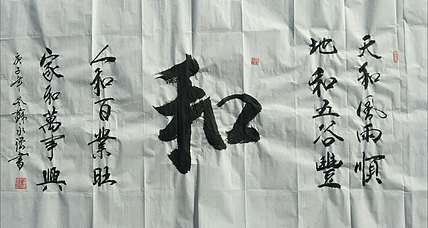 天和風雨順
地和五谷豐
和
人和百業旺
家和萬事興
庚子年
書